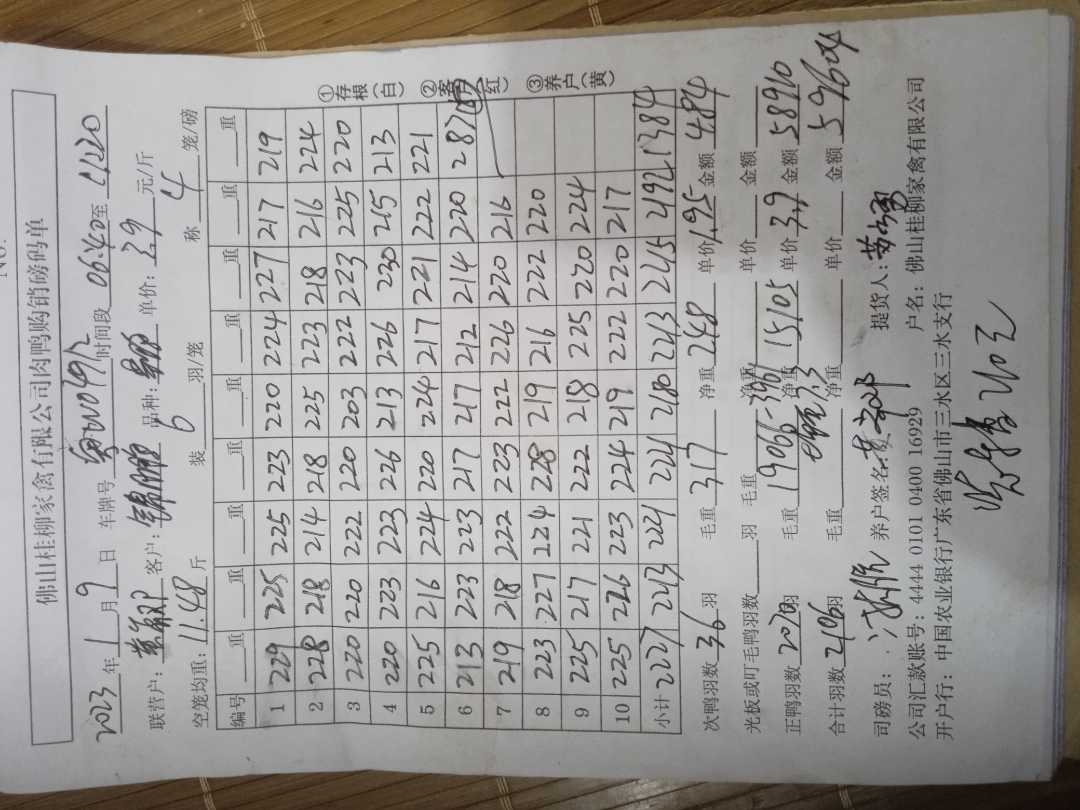 佛山桂柳家禽有限公司肉鸭购销磅码单
2023年1月9日 车牌号 时间段06:40至
联营户： 客户： 品种： 单价：3.9元/斤
空笼均重：11.48斤 装6羽/笼 称4笼/磅
编号 重 重 重 重 重 重 重 重 重
1 229 225 225 223 220 224 227 217 219
2 228 218 214 218 225 223 218 216 224
3 220 220 222 220 203 222 223 225 220
4 220 223 223 226 213 226 230 215 213
5 225 216 224 220 224 217 221 222 221
6 213 223 223 217 217 212 214 220 287
7 219 218 222 223 222 226 220 216
8 223 227 224 228 219 216 222 220
9 225 217 221 222 218 225 220 224
10 225 226 223 224 219 222 220 217
小计 2227 2213 2221 2221 2180 2213 2215 2192 1384
次鸭羽数36羽 毛重317 净重248 单价1.95 金额484
光板或叮毛鸭羽数 羽 毛重 净重 单价 金额
正鸭羽数2070羽 毛重19066-3961 净重15105 单价3.9 金额58910
合计羽数2106羽 毛重 净重 单价 金额59604
司磅员： 养户签名 提货人：
公司汇款账号：4444 0101 0400 16929 户名：佛山桂柳家禽有限公司
开户行：中国农业银行广东省佛山市三水区三水支行
①存根（白） ②客户（红） ③养户（黄）